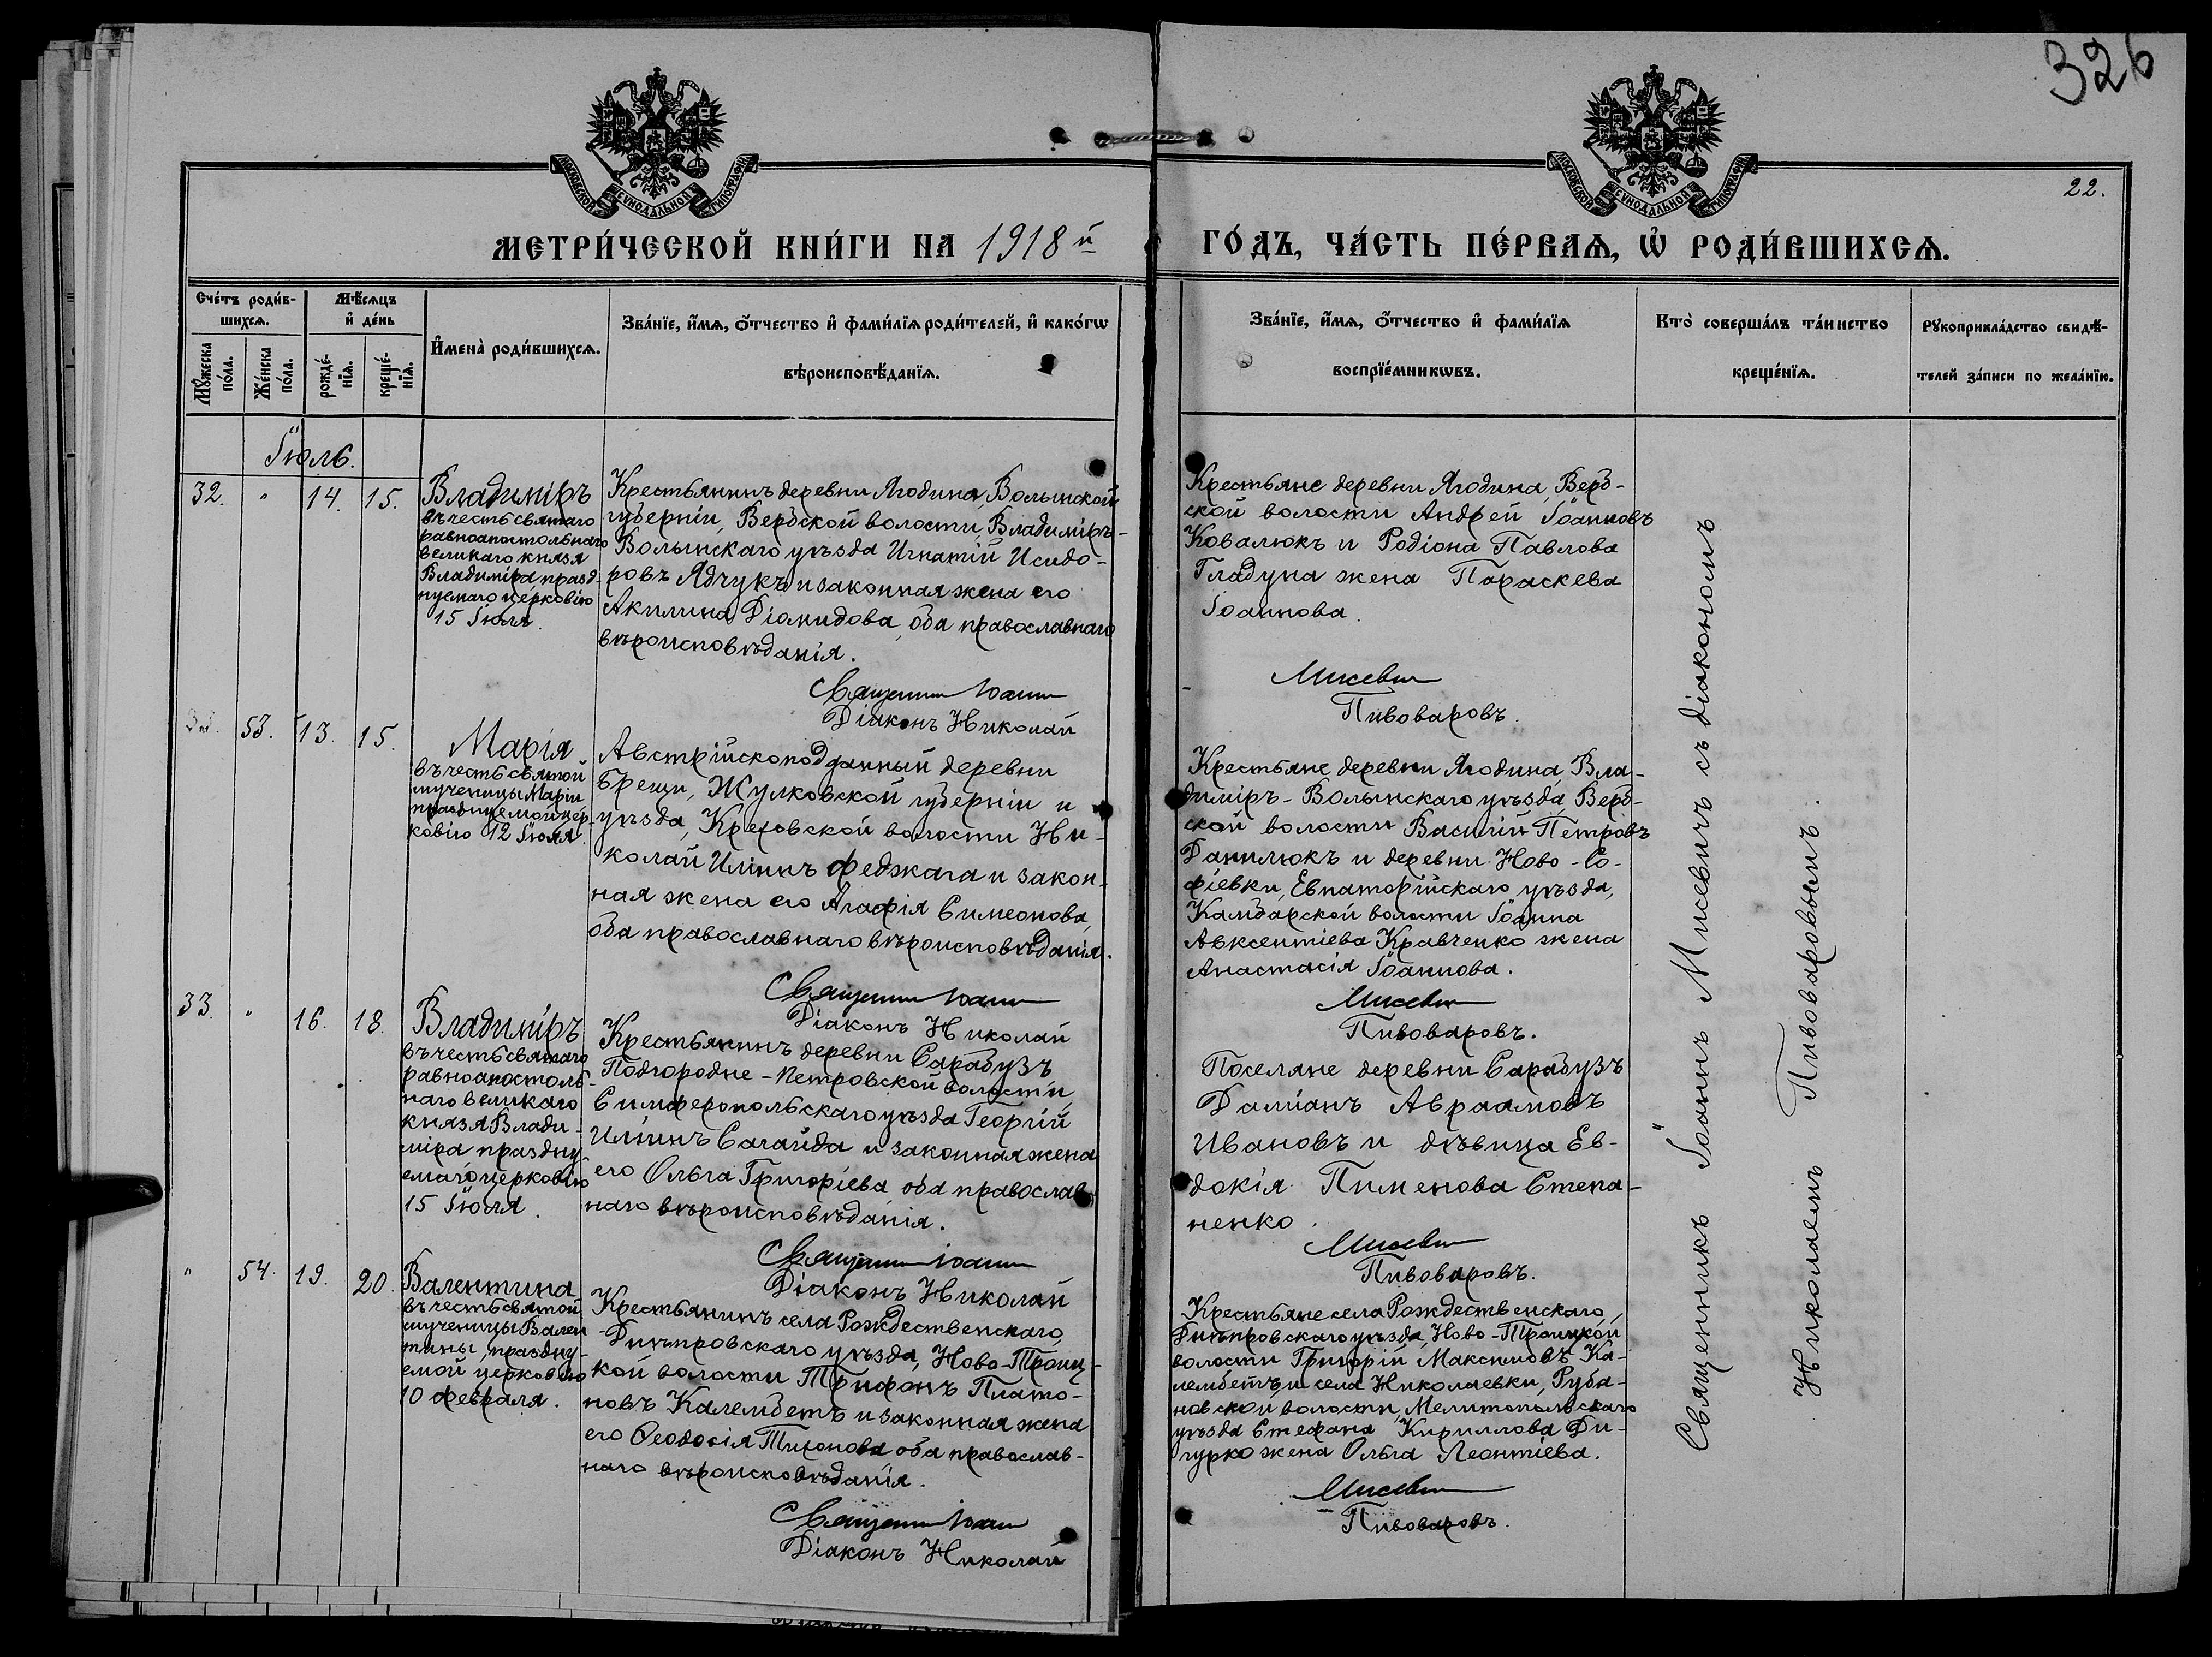 326
МОСКОВСКОЙ СУНОДАЛЬНОЙ ТИПОГРАФІИ
МОСКОВСКОЙ СУНОДАЛЬНОЙ ТИПОГРАФІИ
22.
МЕТРИ́ЧЕСКОЙ КНИ́ГИ НА 1918 й
ГО́ДЪ, ЧА́СТЬ ПЕ́РВАѦ, Ѡ РОДИ́ВШИХСѦ.
Сче́тъ роди́в-
шихсѧ.
Мꙋ́жеска
по́ла.
Же́нска
по́ла.
Мѣ́сѧцъ
и҆ де́нь
рожде́-
нїѧ.
креще́-
нїѧ.
И҆мена̀ роди́вшихсѧ.
Зва́нїе, и҆́мѧ, ѻ҆́тчество и҆ фами́лїѧ роди́телей, и҆ како́гѡ
вѣроисповѣ́данїѧ.
Зва́нїе, и҆́мѧ, ѻ҆́тчество и҆ фами́лїѧ
воспрїе́мникѡвъ.
Кто̀ соверша́лъ та́инство
креще́нїѧ.
Рꙋкоприкла́дство свидѣ́-
телей за́писи по жела́нїю.
Іюль.
32. " 14. 15.
Владиміръ
въ честь святаго
равноапостольнаго
великаго князя
Владиміра празд-
нуемаго церковію
15 Іюля.
Крестьянинъ деревни Ягодина, Волынской
губерніи, Вербской волости, Владиміръ-
Волынскаго уѣзда Игнатій Исидо-
ровъ Ядчукъ и законная жена его
Акилина Діомидова, оба православнаго
вѣроисповѣданія.
Священникъ Іоаннъ
Діаконъ Николай
Крестьяне деревни Ягодина, Верб-
ской волости Андрей Іоанновъ
Ковалюкъ и Родіона Павлова
Гладуна жена Параскева
Іоаннова.
Мисевичъ
Пивоваровъ.
53. 13. 15.
Марія
въ честь святой
мученицы Маріи
празднуемой цер-
ковію 12 Іюля.
Австрійскоподданный деревни
Брещи, Жулковской губерніи и
уѣзда, Креховской волости Ни-
колай Иліинъ Феджага и закон-
ная жена его Агафія Симеонова,
оба православнаго вѣроисповѣданія.
Священникъ Іоаннъ
Діаконъ Николай
Крестьяне деревни Ягодина, Вла-
диміръ-Волынскаго уѣзда, Верб-
ской волости Василій Петровъ
Данилюкъ и деревни Ново-Со-
фіевки, Евпаторійскаго уѣзда,
Камбарской волости Іоанна
Авксентіева Кравченко жена
Анастасія Іоаннова.
Мисевичъ
Пивоваровъ.
33. " 16. 18.
Владиміръ
въ честь святаго
равноапостоль-
наго великаго
князя Влади-
міра праздну-
емаго церковію
15 Іюля.
Крестьянинъ деревни Сарабузъ
Подгородне-Петровской волости,
Симферопольскаго уѣзда Георгій
Иліинъ Сагайда и законная жена
его Ольга Григоріева, оба православ-
наго вѣроисповѣданія.
Священникъ Іоаннъ
Діаконъ Николай
Поселяне деревни Сарабузъ
Даміанъ Авраамовъ
Ивановъ и дѣвица Ев-
докія Пименова Степа-
ненко.
Мисевичъ
Пивоваровъ.
" 54. 19. 20.
Валентина
въ честь святой
мученицы Вален
тины, праздну-
емой церковію
10 февраля.
Крестьянинъ села Рождественскаго,
Днѣпровскаго уѣзда, Ново-Троиц-
кой волости Трифонъ Плато-
новъ Калембетъ и законная жена
его Ѳеодосія Тихонова оба православ-
наго вѣроисповѣданія.
Священникъ Іоаннъ
Діаконъ Николай
Крестьяне села Рождественскаго,
Днѣпровскаго уѣзда, Ново-Троицкой
волости Григорій Максимовъ Ка-
лембетъ и села Николаевки, Руба-
новской волости, Мелитопольскаго
уѣзда Стефана Кириллова Ди-
гурко жена Ольга Леонтіева.
Мисевичъ
Пивоваровъ.
Священникъ Іоаннъ Мисевичъ съ діакономъ
Николаемъ Пивоваровымъ.